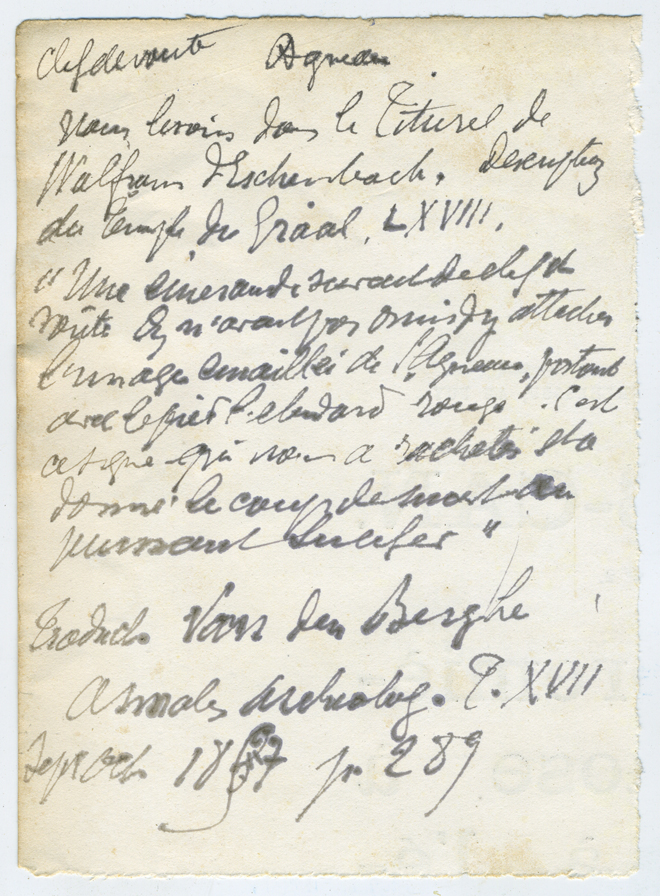 Clef de voute Agneau
Nous lisons dans le Titurel de
Wolfram d'Eschenbach. Description
du Temple du Graal. LXVIII.
"Une émeraude servait de clef de
voûte On n'avait pas omis d'y attacher
l'image émaillée de l'Agneau, portant
avec le pied l'étendard rouge. C'est
ce signe qui nous a rachetés et a
donné le coup de mort au
puissant Lucifer"
Traduct. Van den Berghe
Annales Archeolog. T. XVII
Sept Oct. 1857 p. 289